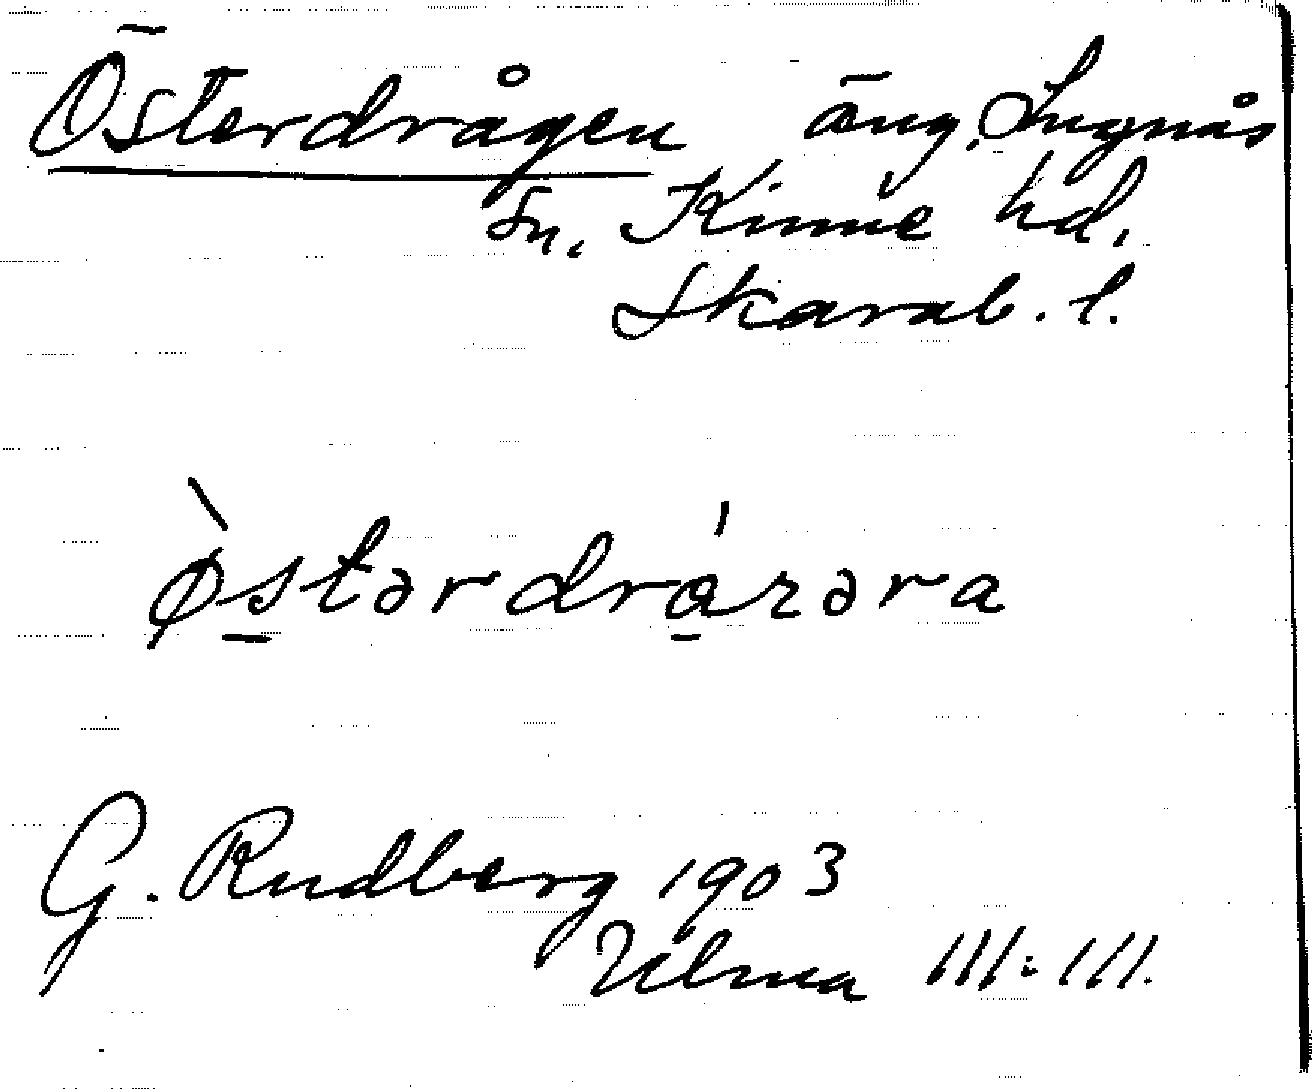 Österdrågen äng, Lugnås
Sn. Kinne hd.
Skarab. l.
Østərdrarəra
G. Rudberg 1903
Ulma 111:111.